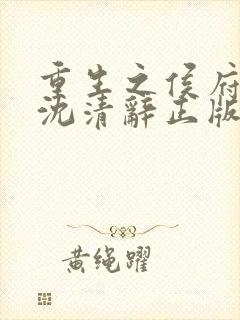 重生之侯府
沈清辞正版
黄绳躍